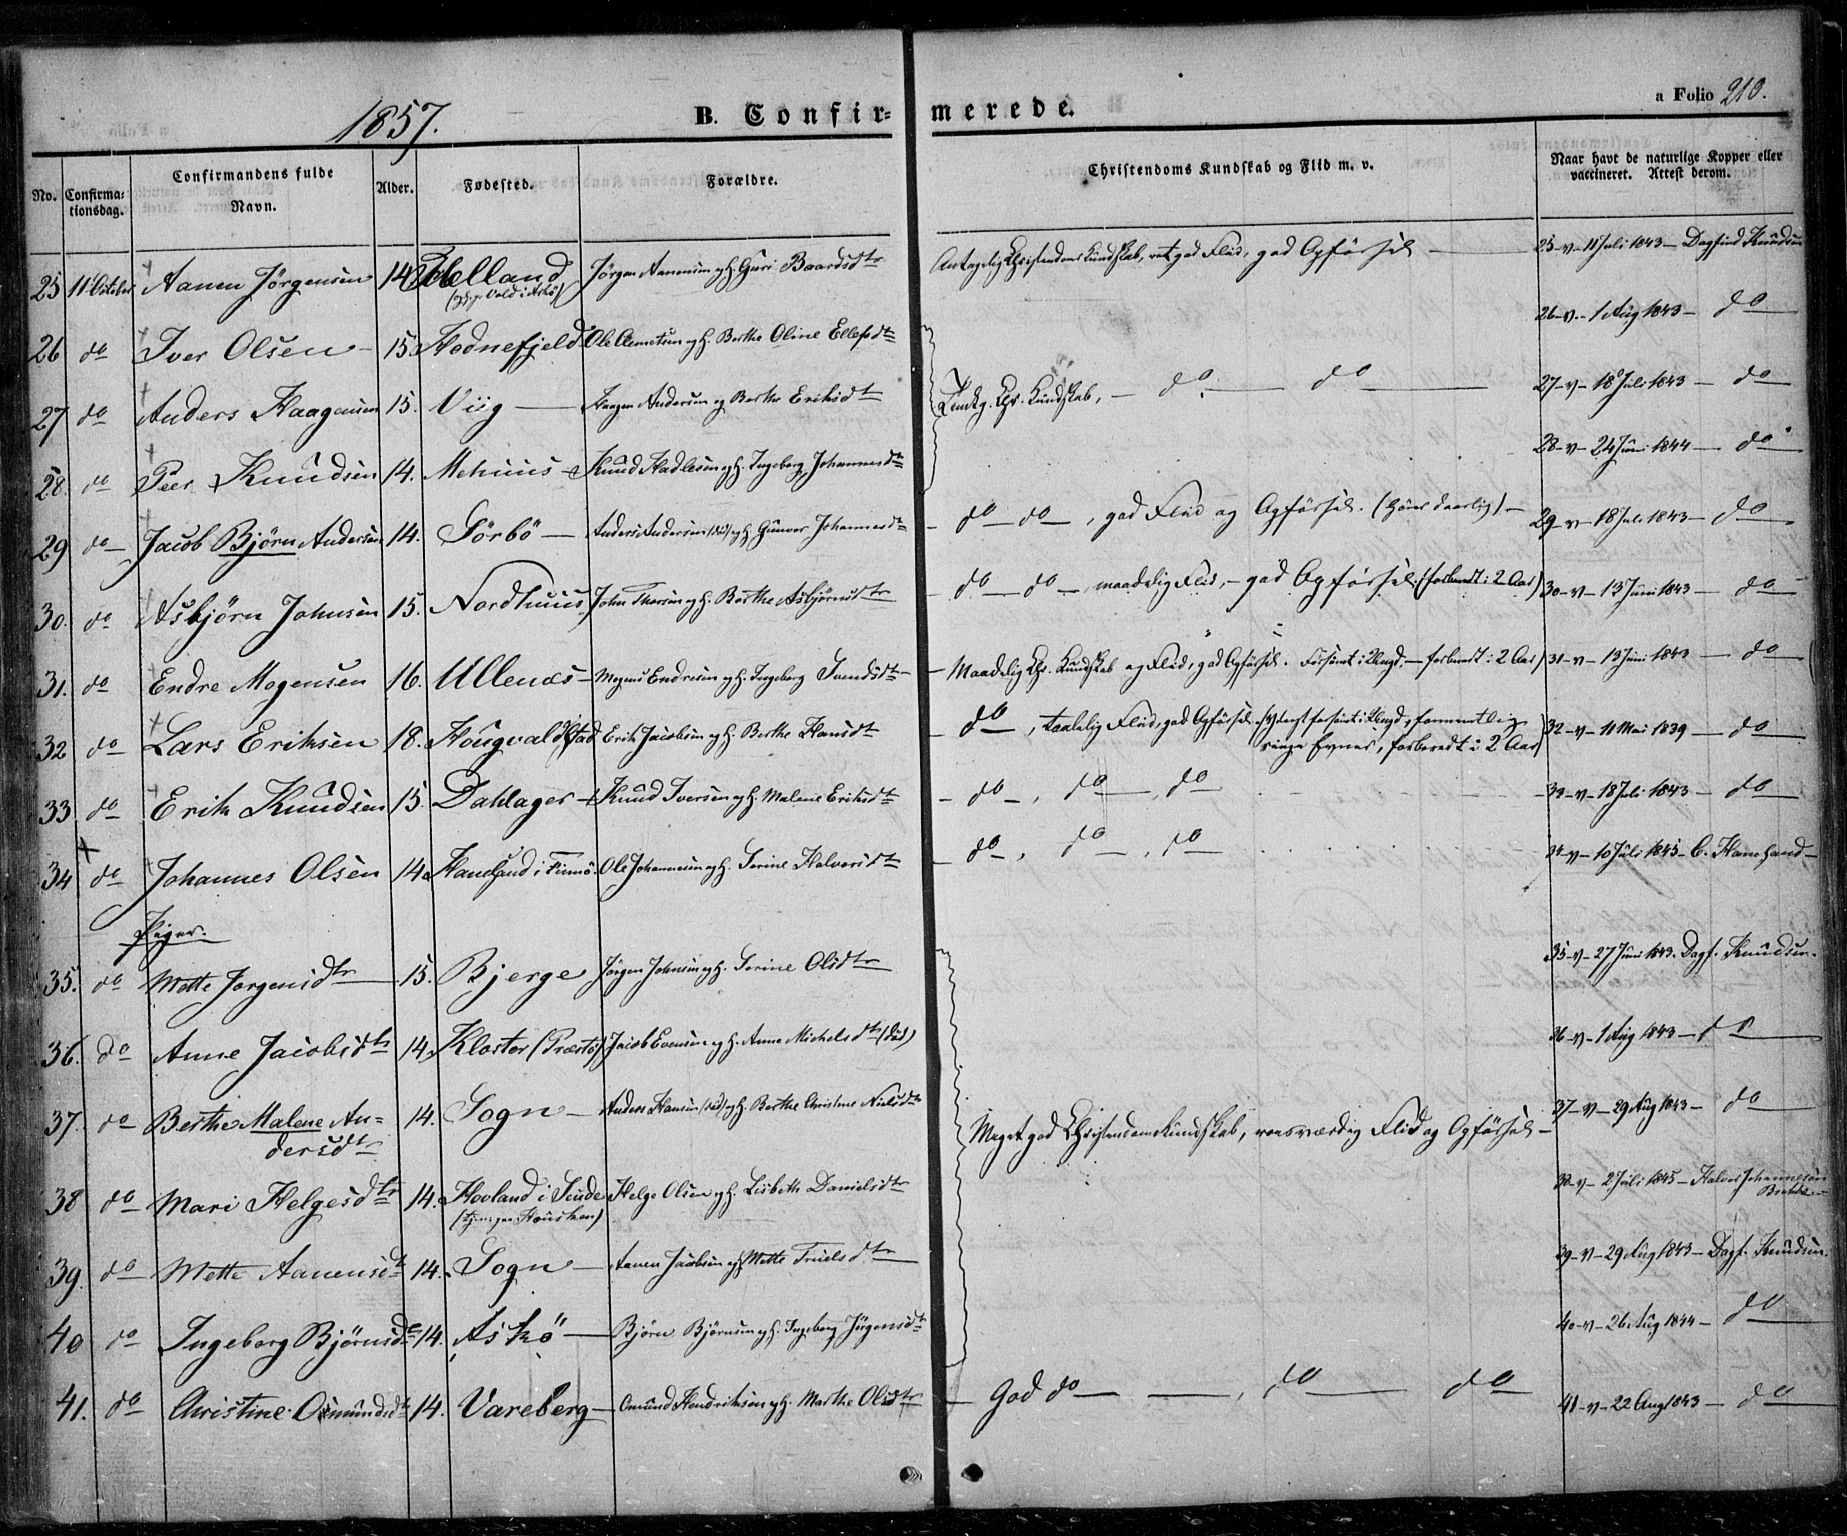 a Folio 210.
1857.
B. Confirmerede.
No.
Confirmationsdag.
Confirmandens fulde Navn.
Alder.
Fødested.
Forældre.
Christendoms Kundskab og Flid m. v.
Naar havt de naturlige Kopper eller vaccineret. Attest derom.
25 11 October Aanen Jørgensen 14 Helland Jørgen Aanensen og H. Guri Baardsdtr Antagelig Christendoms Kundskab, ret god Flid, god Opførsel 25-v-11 Juli 1843- Dagfind Knudsen
26 do Iver Olsen 15. Hodnefjeld Ole Clemetsen og H. Berthe Oline Ellefsdtr 26-v-1 Aug 1843- do
27 do Anders Haagensen 15. Viig Haagen Andersen og Berthe Eriksdtr Chr. Kundskab, - do do 27-v-18 Juli 1843 - do
28. do Peer Knudsen 14. Mehuus Knud Hadlesen og H. Ingeborg Johannesdtr 28-v-24 Juni 1844- do
29 do Jacob Bjørn Andersen 14. Sørbö Anders Andersen (död) og H. Gunvor Johannesdtr do do, god Flid og Opførsel. (hører daarlig) 29-v-18 Juli 1843- do
30. do Asbjørn Johnsen 15. Nordhuus John Thorsen og H. Berthe Asbjørnsdtr do do, maadelig Flid, - god Opførsel (forberedt i 2 Aar) 30-v-13 Juni 1843 - do
31. do Endre Mogensen 16. Ullenæs Mogens Endresen og H. Ingeborg Svendsdtr Maadelig Chr. Kundskab og Flid, god Opførsel. Forsömt i Ungd. - forberedt i 2 Aar) 31-v-13 Juni 1843 - do
32 do Lars Eriksen 18. Hougvaldstad Erik Jacobsen og H. Berthe Hansdtr do, taalelig Flid, god Opførsel. (Yderst forsömt i Ungd.,
ringe Evner, forberedt i 2 Aar) 32-v-11 Mai 1839 - do
33 do Erik Knudsen 15. Dahlager Knud Iversen og H. Malene Eriksdtr do, do, do 33-v-18 Juli 1843- do
34 do Johannes Olsen 14. i Finnö. Ole Johannesen og H. Serine Halvorsdtr do, do, do 34-v-10 Juli 1845-
Piger.
35. do Mette Jørgensdtr 15. Bjerge Jørgen Johnsen og H. Serine Olsdtr 35-v-27 Juni 1843. Dagf. Knudsen.
36. do Anne Jacobsdtr 14. Kloster Jacob Evensen og H. Anne Michelsdtr (död) 36-v-1 Aug 1843- do
37. do Berthe Malene An-
dersdtr 14. Sogn Anders Hansen (död) og H. Berthe Christine Nielsdtr Meget god Christendomskundskab, roesværdig Flid og Opførsel 37-v-29 Aug 1843- do
38 do Mari Helgesdtr 14. Hovland i Helge Olsen og H. Lisbeth Danielsdtr 38-v-2 Juli 1845- Halvor Johannesen
39. do Mette Aanensdtr 14. Sogn Aanen Jacobsen og H. Mette Truelsdtr 39-v-29 Aug 1843- Dagf. Knudsen.
40 do Ingeborg Bjørnsdtr 14. Askö Bjørn Bjørnsen og H. Ingeborg Jørgensdtr 40-v-26 Aug 1844- do
41. do Christine Omundsdtr 14. Vareberg Omund Hendriksen og H. Marthe Olsdtr God do, do do 41-v-22 Aug 1843- do